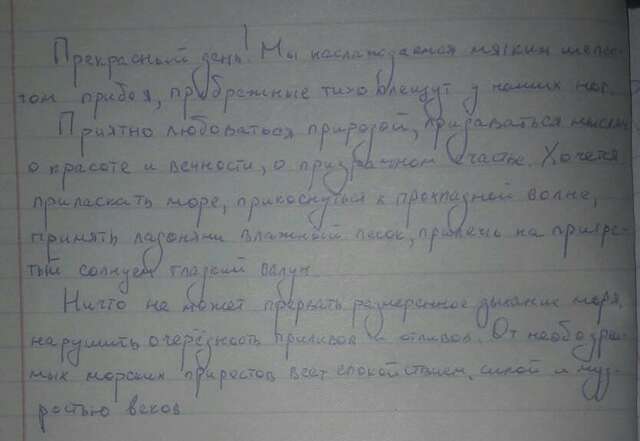 Прекрасный день! Мы наслаждаемся мягким шелес-
том прибоя, прибрежные тихо блещут у наших ног.
Приятно любоваться природой, предаваться мыслям
о красоте и вечности, о призрачном счастье. Хочется
приласкать море, прикоснуться к прохладной волне,
принять ладонями влажный песок, прилечь на пригре-
тый солнцем гладкий валун.
Ничто не может прервать размеренное дыхание моря,
нарушить очерёдность приливов и отливов. От необозри-
мых морских веет спокойствием, силой и муд-
ростью веков